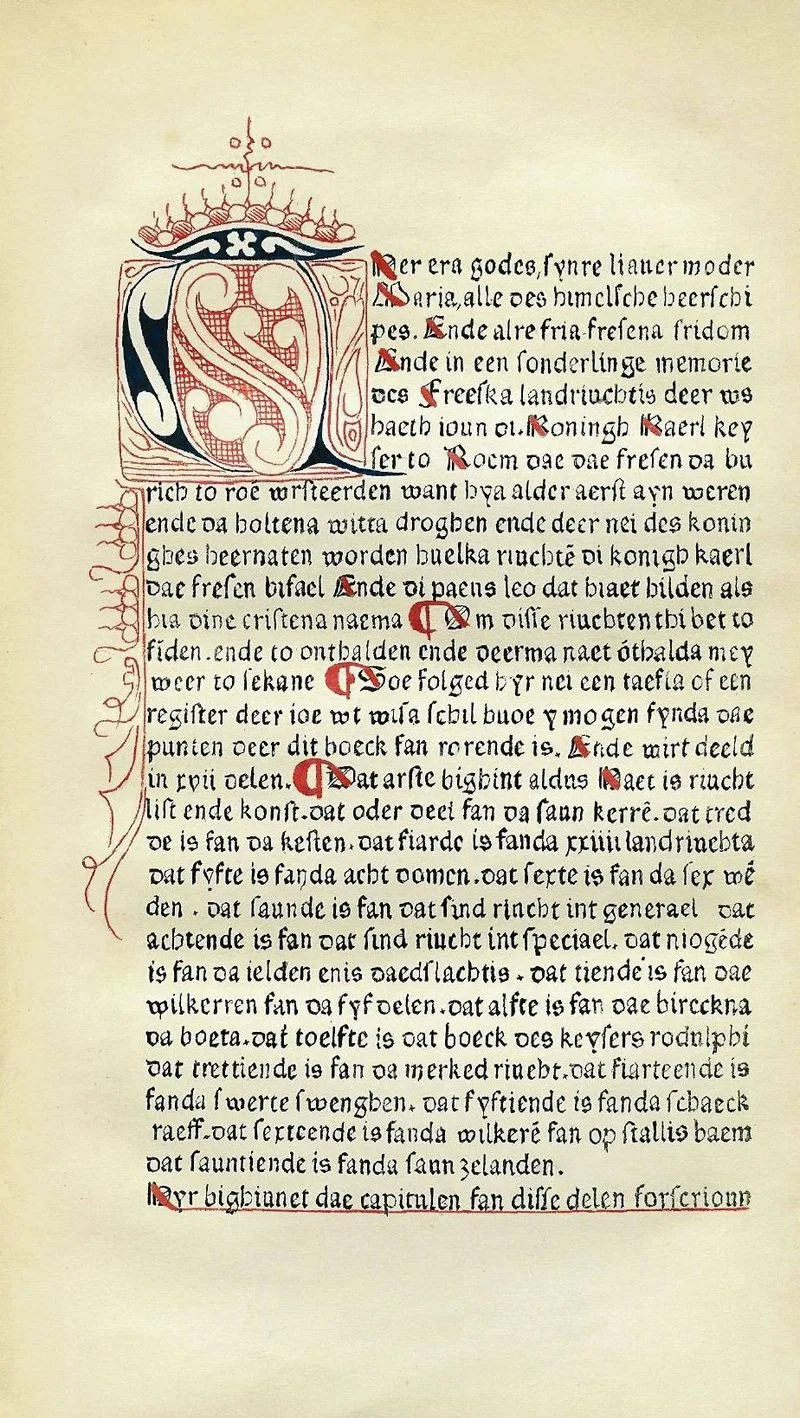 Ter era godes, synre liauer moder
Maria, alle des himelsche heerschi
pes. Ende alre fria fresena fridom
Ende in een sonderlinge memorie
des Freeska landriuchtis deer ws
haeth ioun di. Koningh Kaerl key
ser to Roem dae dae fresen da bu
rich to roē wrsteerden want hya alder aerst ayn weren
ende da holtena witta droghen ende deer nei des konin
ghes heernaten worden huelka riuchtē di konigh kaerl
dae fresen bifael Ende di paeus leo dat hiaet hilden als
hia dine cristena naema ¶ Om disse riuchten thi bet to
fiden. ende to onthalden ende deerma naet óthalda mey
weer to sekane ¶ Soe folged hyr nei een taefla of een
register deer ioe wt wisa schil huoe y mogen fynda dae
punten deer dit boeck fan rorende is. Ende wirt deeld
in xvii delen. ¶ Dat arste bighint aldus Haet is riucht
list ende konst. dat oder deel fan da saun kerrē. dat tred
de is fan da kesten. dat fiarde is fanda xxiiii landriuchta
dat fyfte is fanda acht domen. dat sexte is fan da sex wē
den. dat saunde is fan dat sind riucht int generael dat
achtende is fan dat sind riucht int speciael. dat niogēde
is fan da ielden enis daedslachtis. dat tiende is fan dae
wilkerren fan da fyf delen. dat alfte is fan dae bireckna
da boeta. dat toelfte is dat boeck des keysers rodulphi
dat trettiende is fan da merked riucht. dat fiarteende is
fanda swerte swenghen. dat fyftiende is fanda schaeck
raeff. dat sexteende is fanda wilkerē fan op stallis baem
dat sauntiende is fanda saun zelanden.
Hyr bighinnet dae capitulen fan disse delen forscrioun